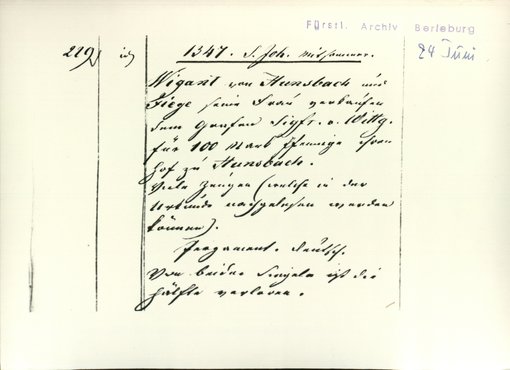 Fürstl. Archiv Berleburg
24 Juni
219) id) 1347. S. Joh. mitsommer.
Wigant von Hunsbach und
Fiege seine Frau verkaufen
dem Grafen Sigfr. v. Wittg.
für 100 Mark Pfennige ihren
Hof zu Hunsbach.
Viele Zeugen (welche in der
Urkunde nachgelesen werden
können).
Pergament. deutsch.
Von beiden Siegeln ist die
Hälfte verloren.